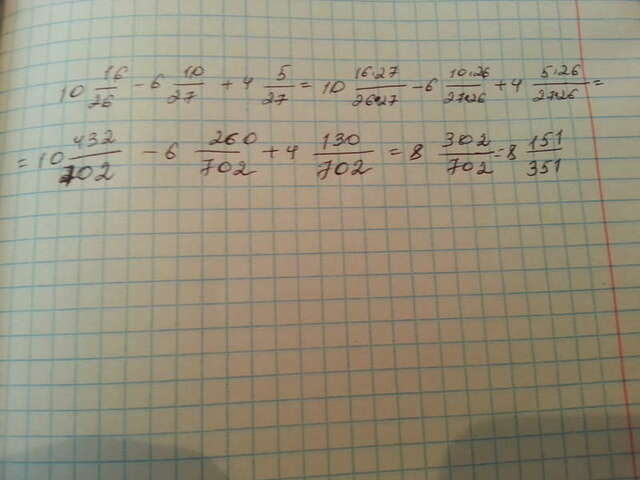 10 16/26 - 6 10/27 + 4 5/27 = 10 16·27/26·27 - 6 10·26/27·26 + 4 5·26/27·26 =
= 10 432/702 - 6 260/702 + 4 130/702 = 8 302/702 = 8 151/351